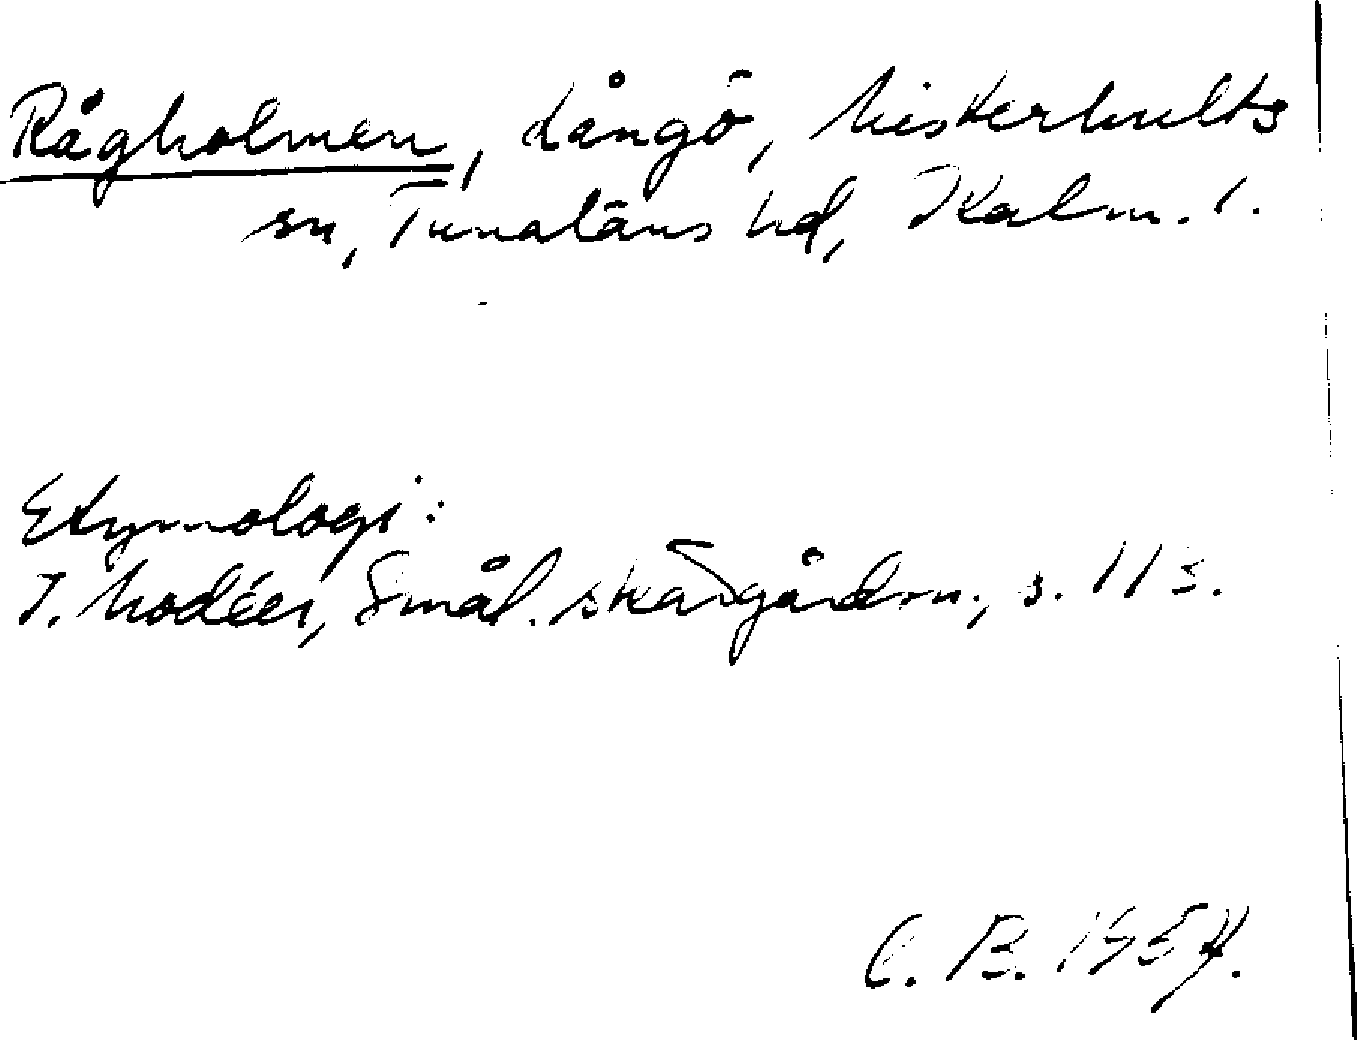 Rågholmen, Långö, Misterhults
sn, Tunaläns hd, Kalm. l.
Etymologi:
I. Modéer, Smål. skärgårdsn., s. 113.
C. B. 1954.